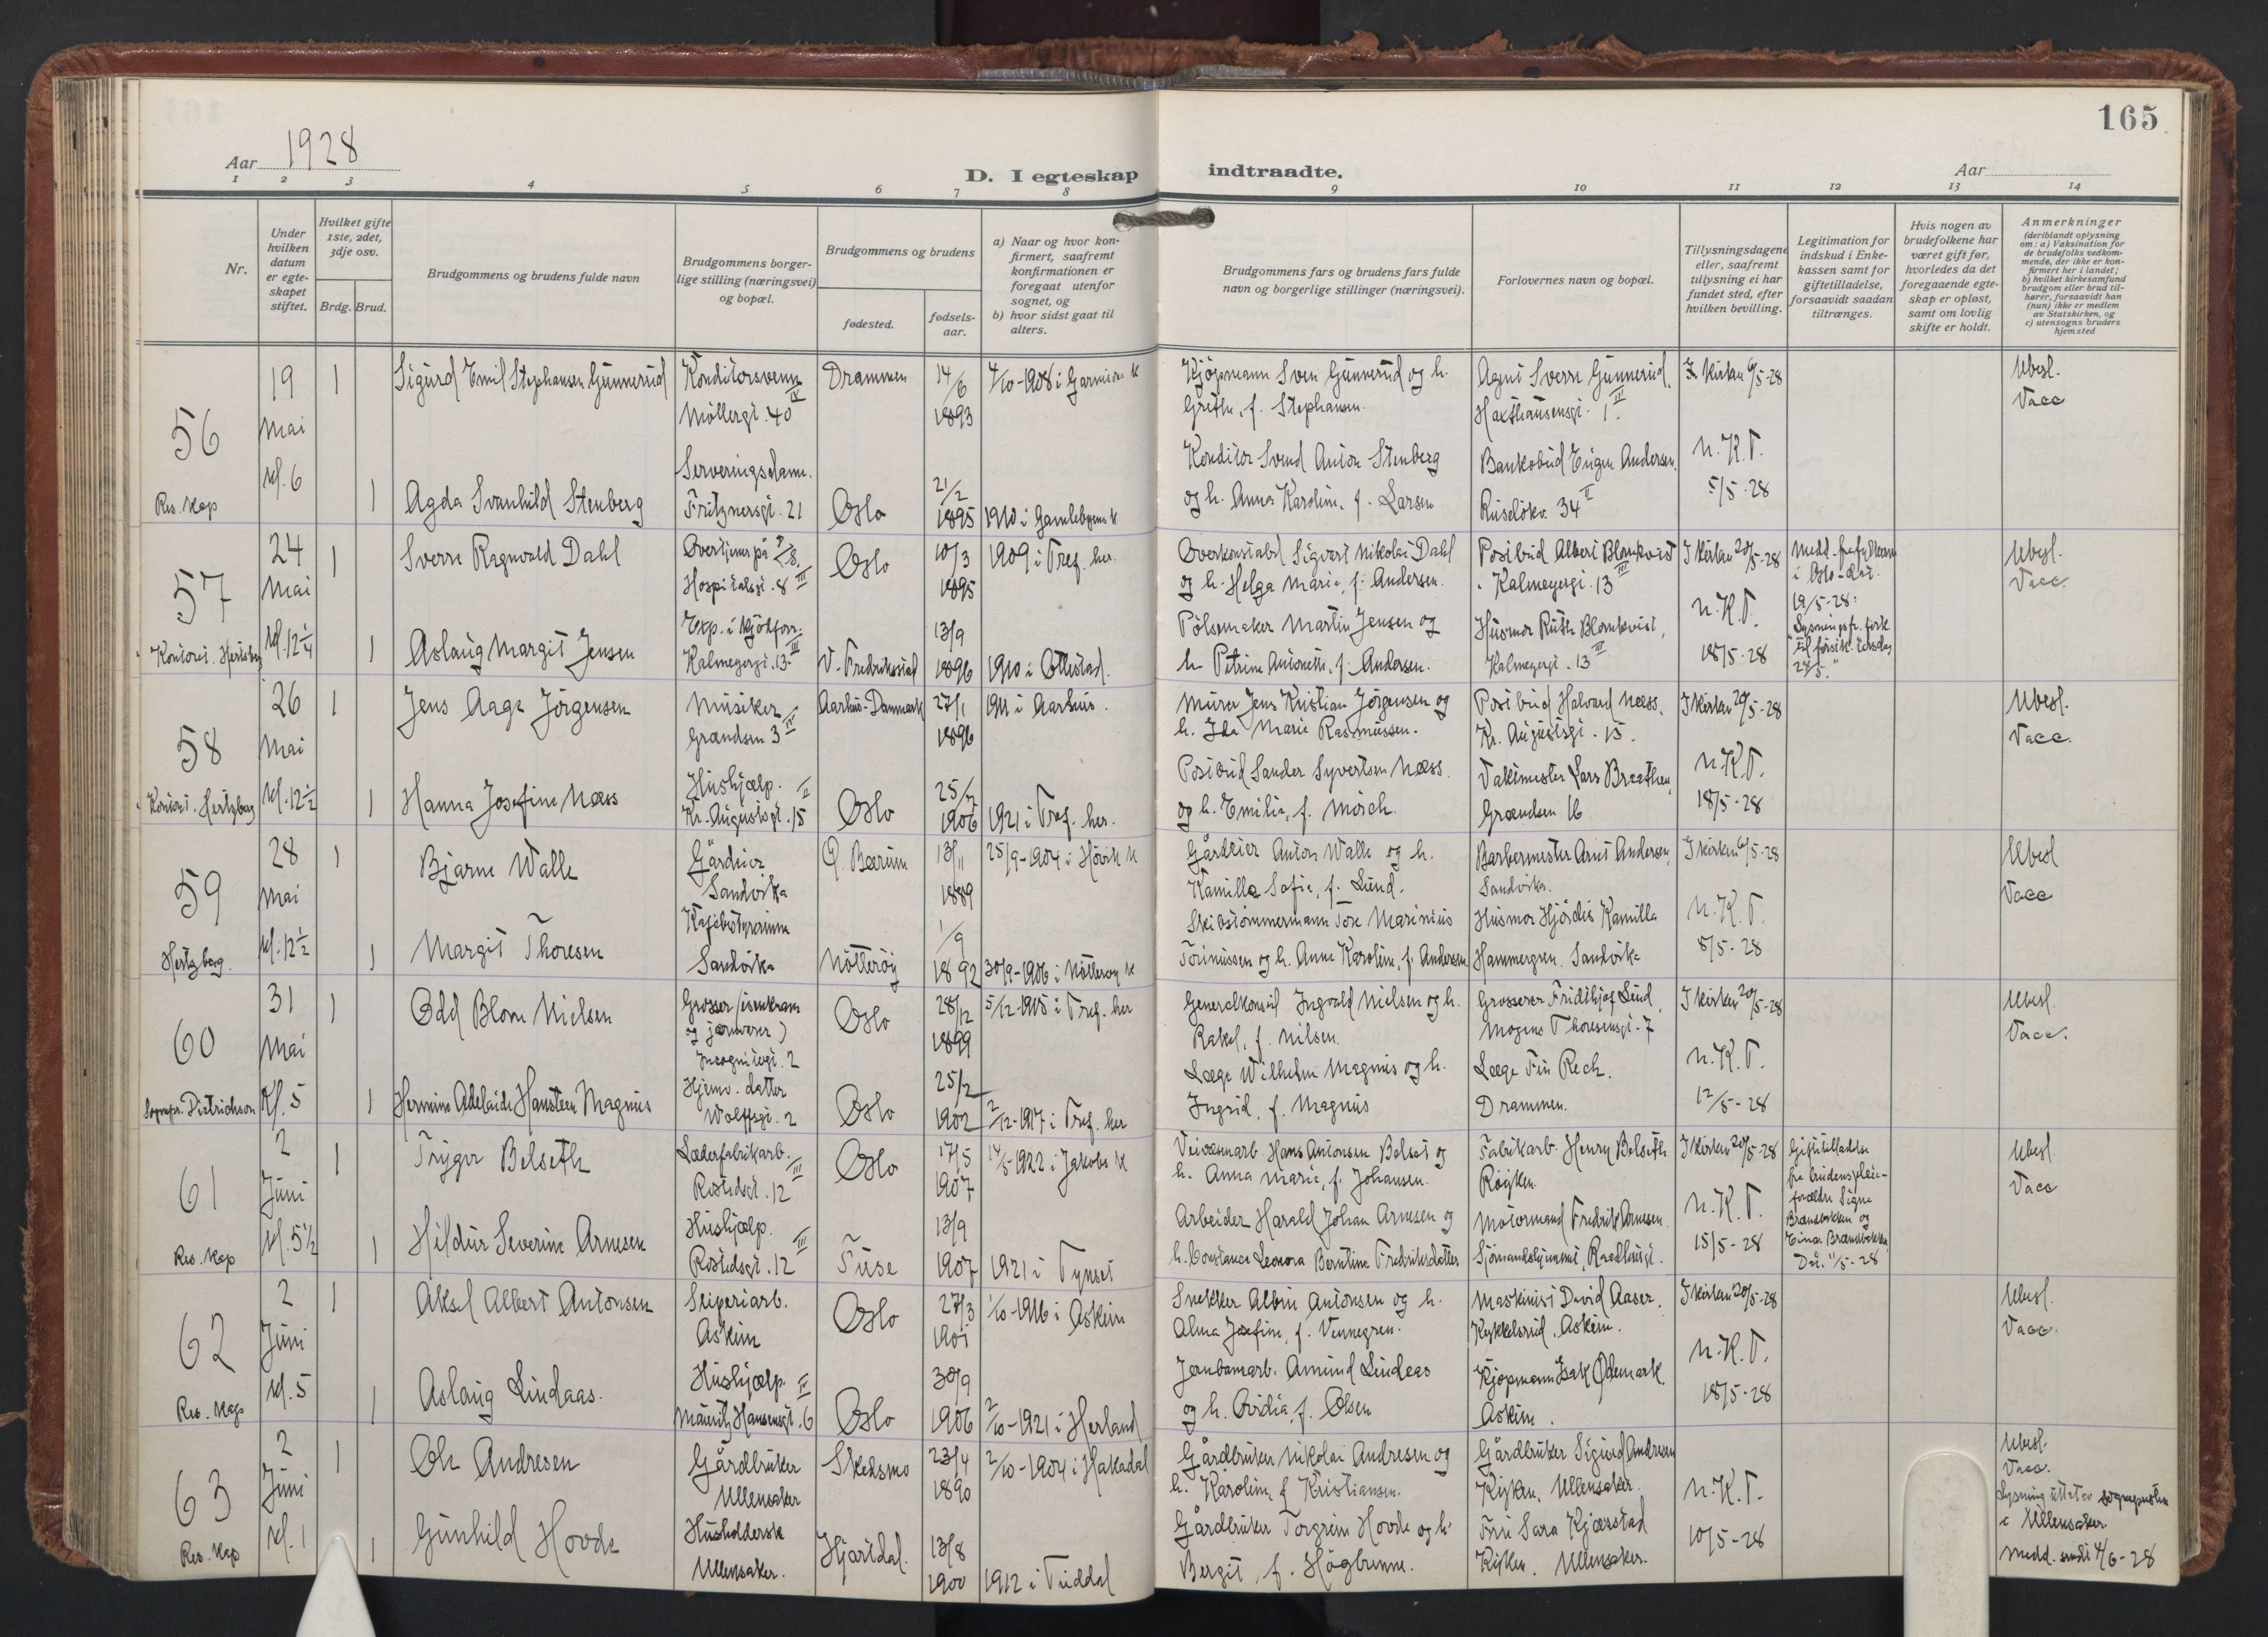 165
Aar 1928
D. I egteskap indtraadte.
Aar
1 2 3 4 5 6 7 8 9 10 11 12 13 14
Nr.
Under hvilken datum er egteskapet stiftet.
Hvilket gifte 1ste, 2det, 3dje osv.
Brdg. Brud.
Brudgommens og brudens fulde navn
Brudgommens borgerlige stilling (næringsvei) og bopæl.
Brudgommens og brudens
fødested.
fødselsaar.
a) Naar og hvor konfirmert, saafremt konfirmationen er foregaat utenfor sognet, og
b) hvor sidst gaat til alters.
Brudgommens fars og brudens fars fulde navn og borgerlige stillinger (næringsvei).
Forlovernes navn og bopæl.
Tillysningsdagene eller, saafremt tillysning ei har fundet sted, efter hvilken bevilling.
Legitimation for indskud i Enkekassen samt for giftetilladelse, forsaavidt saadan tiltrænges.
Hvis nogen av brudefolkene har været gift før, hvorledes da det foregaaende egteskap er opløst, samt om lovlig skifte er holdt.
Anmerkninger (deriblandt oplysning om: a) Vaksination for de brudefolks vedkommende, der ikke er konfirmert her i landet; b) hvilket kirkesamfund brudgom eller brud tilhører, forsaavidt han (hun) ikke er medlem av Statskirken, og c) utensogns bruders hjemsted
56
19 Mai Kl. 6
Res. Kap
1 Sigurd Emil Stephansen Gunnerud
Konditorsvenn Möllergt. 40 IV
Drammen
14/6 1893
4/10-1908 i Garnisons K
Kjöpmann Sven Gunnerud og h.
Grethe, f. Stephansen.
Agent Sverre Gunnerud.
Haxthausensgt. 1 III
I Kirken 6/5-28
Ubesl.
Vacc
1 Agda Svanhild Stenberg
Serveringsdame.
Fritznersgt. 21
Oslo
21/2 1895
1910 i Gamlebyens K
Konditor Svend Anton Stenberg
og h. Anna Karoline, f. Larsen
Bankobud Eugen Andersen.
Ruselökv. 34 II
N.K.T.
5/5-28
57
24 Mai Kl. 12 1/4
Konst. Hertzberg
1 Sverre Ragnvald Dahl
Overtjener på
Hospitalsgt. 8 III
Oslo
10/3 1895
1909 i Tref. her.
Overkonstabel Sigvart Nikolai Dahl
og h. Helga Marie, f. Andersen.
Postbud Albert Blomkvist
Kalmeyergt. 13 III
I Kirken 20/5-28
Medd. fra
i Oslo
19/5-28:
Ubesl.
Vacc.
1 Aslaug Margit Jensen
Exp. i kjödforr.
Kalmeyergt. 13 III
V. Fredrikstad
13/9 1896
1910 i Ottestad.
Pölsemaker Martin Jensen og
h. Petrine Antonette, f. Andersen.
Husmor Ruth Blomkvist,
Kalmeyergt. 13 III
N.K.T.
18/5-28
58
26 Mai Kl. 12 1/2
Konst. Hertzberg
1 Jens Aage Jörgensen
Musiker
Grændsen 3 IV
Aarhus-Danmark
27/1 1896
1911 i Aarhus.
Murer Jens Kristian Jörgensen og
h. Ida Marie Rasmussen.
Postbud Halvard Næss.
Kr. Augustsgt. 15.
I Kirken 20/5-28
Ubesl.
Vacc.
1 Hanna Josefine Næss
Hushjælp.
Kr. Augustsgt. 15 II
Oslo
1906
1921 i Tref. her.
Postbud Sander Syvertsen Næss.
og h. Emilie, f. Mörch.
Vaktmester Lars Braathen,
Grændsen 16
N.K.T.
18/5-28
59
28 Mai Kl. 12 1/2
Hertzberg.
1 Bjarne Walle
Gårdeier
Sandvika
Ö. Bærum
13/11 1889
25/9-1904 i Hövik K
Gårdeier Anton Walle og h.
Kamilla Sofie, f. Lund.
Barbermester Arnt Andersen,
Sandvika.
I Kirken 6/5-28
Ubesl
Vacc
1 Margit Thoresen
Kafébestyrerinne
Sandvika
Nötteröy
1/9 1892
30/9-1906 i Nötteröy K
Skibstömmermann Tore Marinius
Torinussen og h. Anne Karoline, f. Andersen
Husmor Hjördis Kamilla
Hammergren. Sandvika
N.K.T.
8/5-28
60
31 Mai Kl. 5
Sognepr. Dietrichson
1 Odd Blom Nielsen
Grosser (isenkram
og jernvarer)
Incognitogt. 2
Oslo
28/12 1899
5/12-1915 i Tref. her
Generalkonsul Ingvald Nielsen og h.
Rakel, f. Nilsen.
Grosserer Fridthjof Lund
Mogens Thoresensgt. 7
I Kirken 20/5-28
Ubesl.
Vacc.
1 Hermine Adelaide Hansteen Magnus
Hjemv. datter
Wolffsgt. 2
Oslo
25/2 1902
2/12-1917 i Tref. her
Læge Wilhelm Magnus og h.
Ingrid, f. Magnus
Læge Fin Rech.
Drammen.
N.K.T.
12/5-28
61
2 Juni Kl. 5 1/2
Res. Kap
1 Trygve Belseth
Læderfabrikarb.
Rostedsgt. 12 III
Oslo
17/5 1907
14/5-1922 i Jakobs K
Veivæsenarb. Hans Antonsen Belset og
h. Anna Marie, f. Johansen.
Fabrikarb. Henry Belseth
Röyken.
I Kirken 20/5-28
Giftetilladelse
fra brudens pleie-
forældre Signe
Brænebakken og
Einar Brænebakken
Dat. 11/5-28
Ubesl.
Vacc
1 Hildur Severine Arnesen
Hushjælp.
Rostedsgt. 12 III
Fuse
13/9 1907
1921 i Tynset
Arbeider Harald Johan Arnesen og
h. Constance Leonora Berntine Fredriksdatter
Motormand Fredrik Arnesen.
Sjömandshjemmet, Raadhusgt.
N.K.T.
15/5-28
62
2 Juni Kl. 5
Res. Kap
1 Aksel Albert Antonsen
Sliperiarb.
Askim
Oslo
27/3 1901
1/10-1916 i Askim
Snekker Albin Antonsen og h.
Alma Josefine, f. Vennegren.
Maskinist David Aaser.
Kykkelsrud, Askim.
I Kirken 20/5-28
Ubesl.
Vacc.
1 Aslaug Lindaas.
Hushjælp.
Mauritz Hansensgt. 6 IV
Oslo
30/9 1906
2/10-1921 i Herland
Jernbanearb. Amund Lindaas
og h. Ovidia, f. Olsen
Kjöpmann Isak Ödemark.
Askim.
N.K.T.
18/5-28
63
2 Juni Kl. 1
Res. Kap
1 Ole Andresen
Gårdbruker
Ullensaker
Skedsmo
23/4 1890
2/10-1904 i Hakadal
Gårdbruker Nikolai Andresen og
h. Karoline, f. Kristiansen.
Gårdbruker Sigurd Andresen
Ullensaker.
N.K.T.
10/5-28
Ubesl.
Vacc.
Lysning utstet av sognepresten
i Ullensaker.
Medd. sendt 4/6-28
1 Gunhild Hovde
Husholderske
Ullensaker.
Hjartdal.
13/8 1900
1912 i Tuddal
Gårdbruker Torgrim Hovde og h.
Bergit, f. Högbrunne.
Fru Sara Kjærstad
Ullensaker.